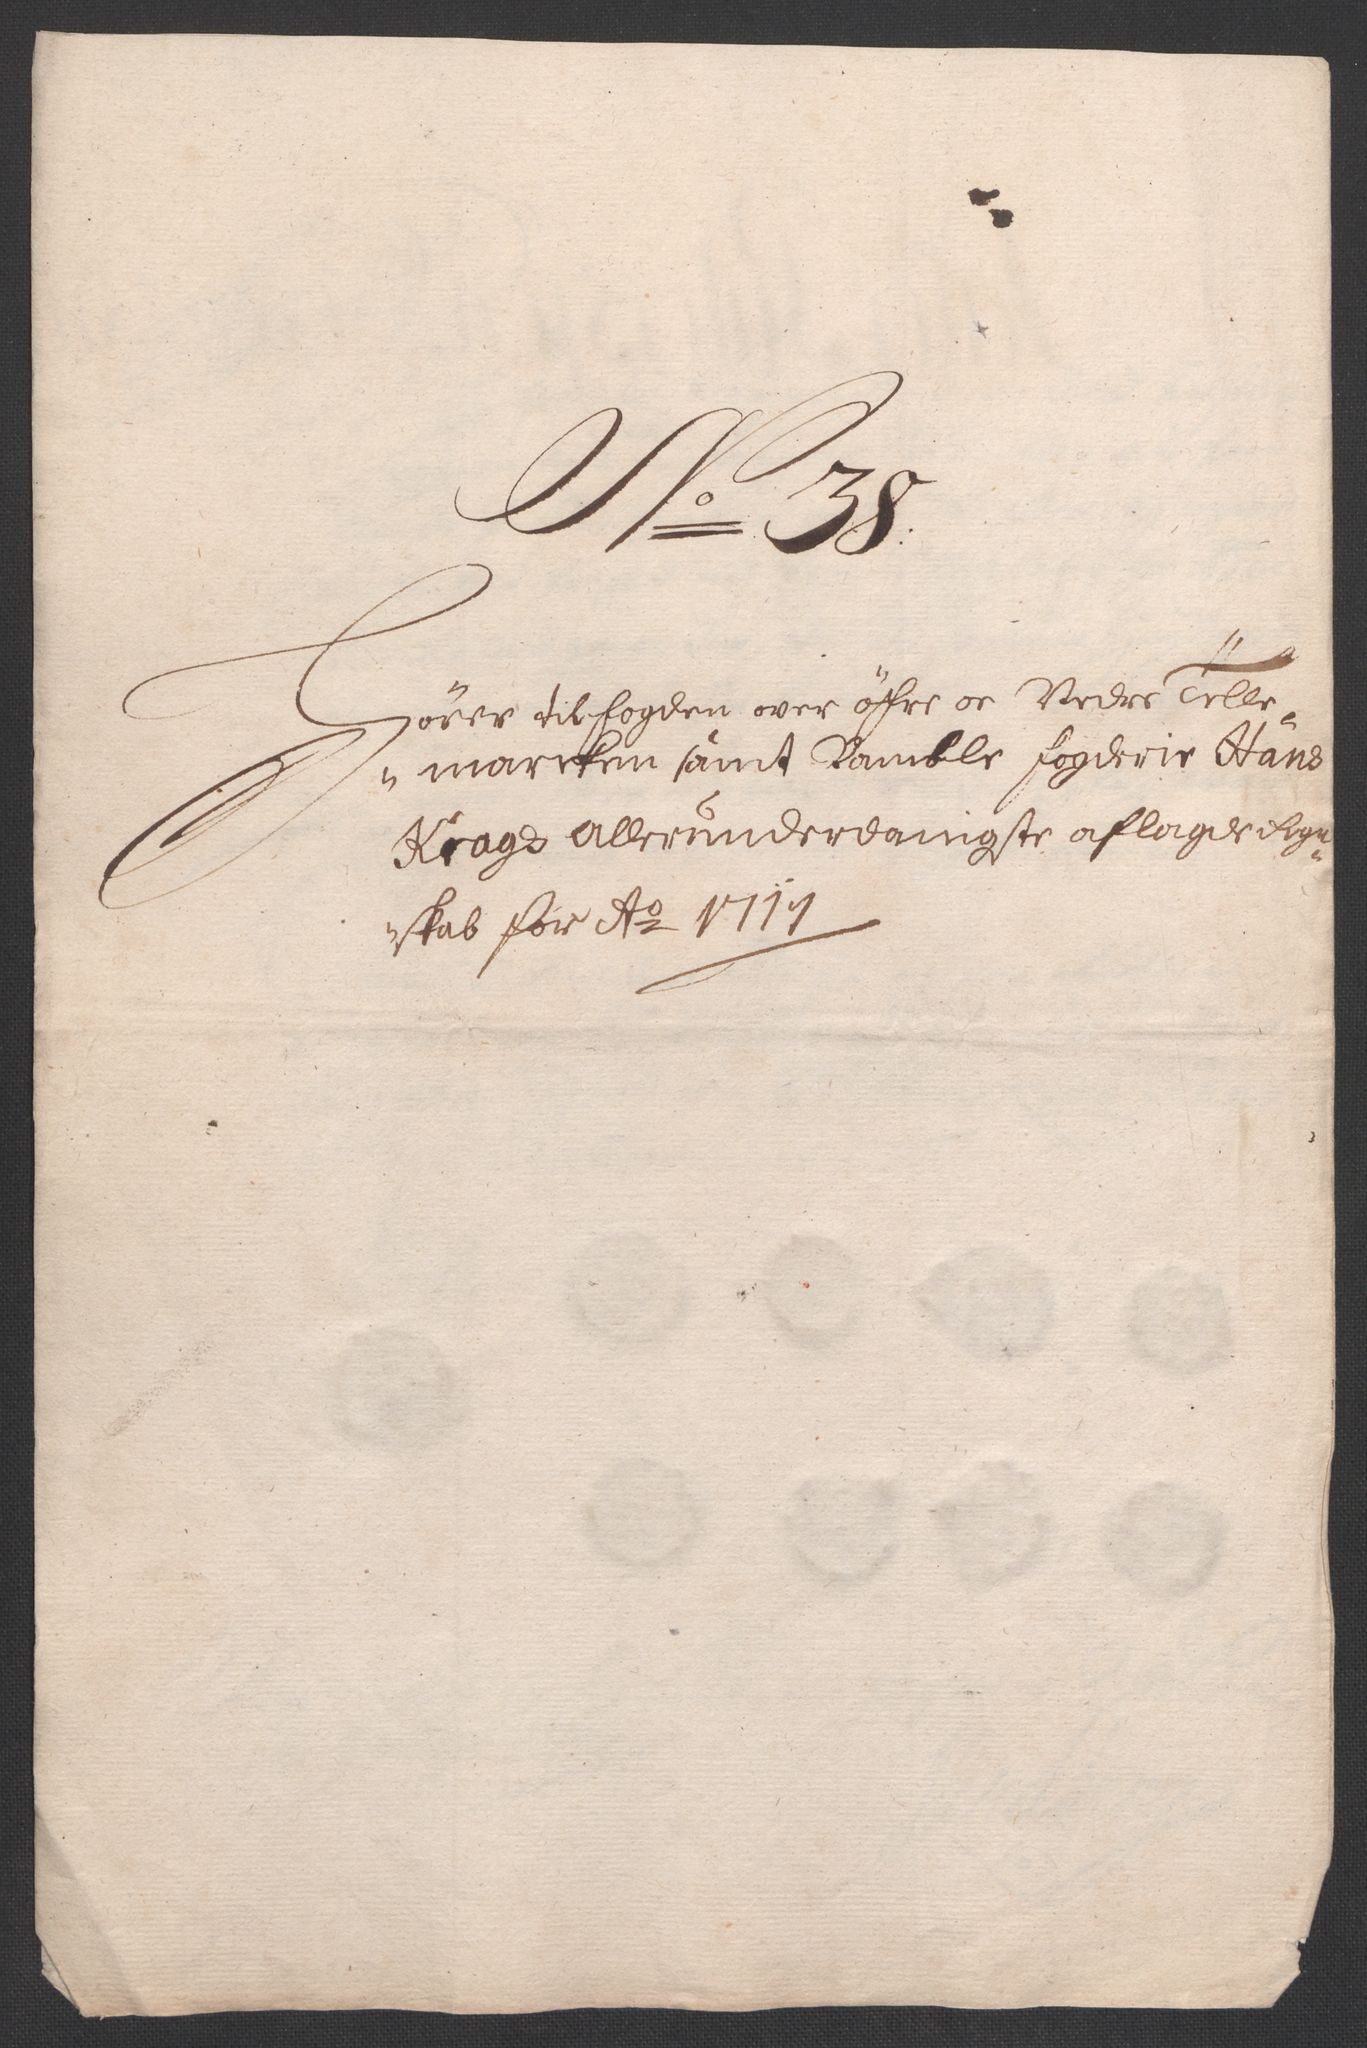 No 38.
Hörer til fogden over öffre oc Nedre Telle„
„marcken sampt Bamble fogderie Hans
Krags allerunderdanigste aflagde Regn„
„skab for Ao 1711